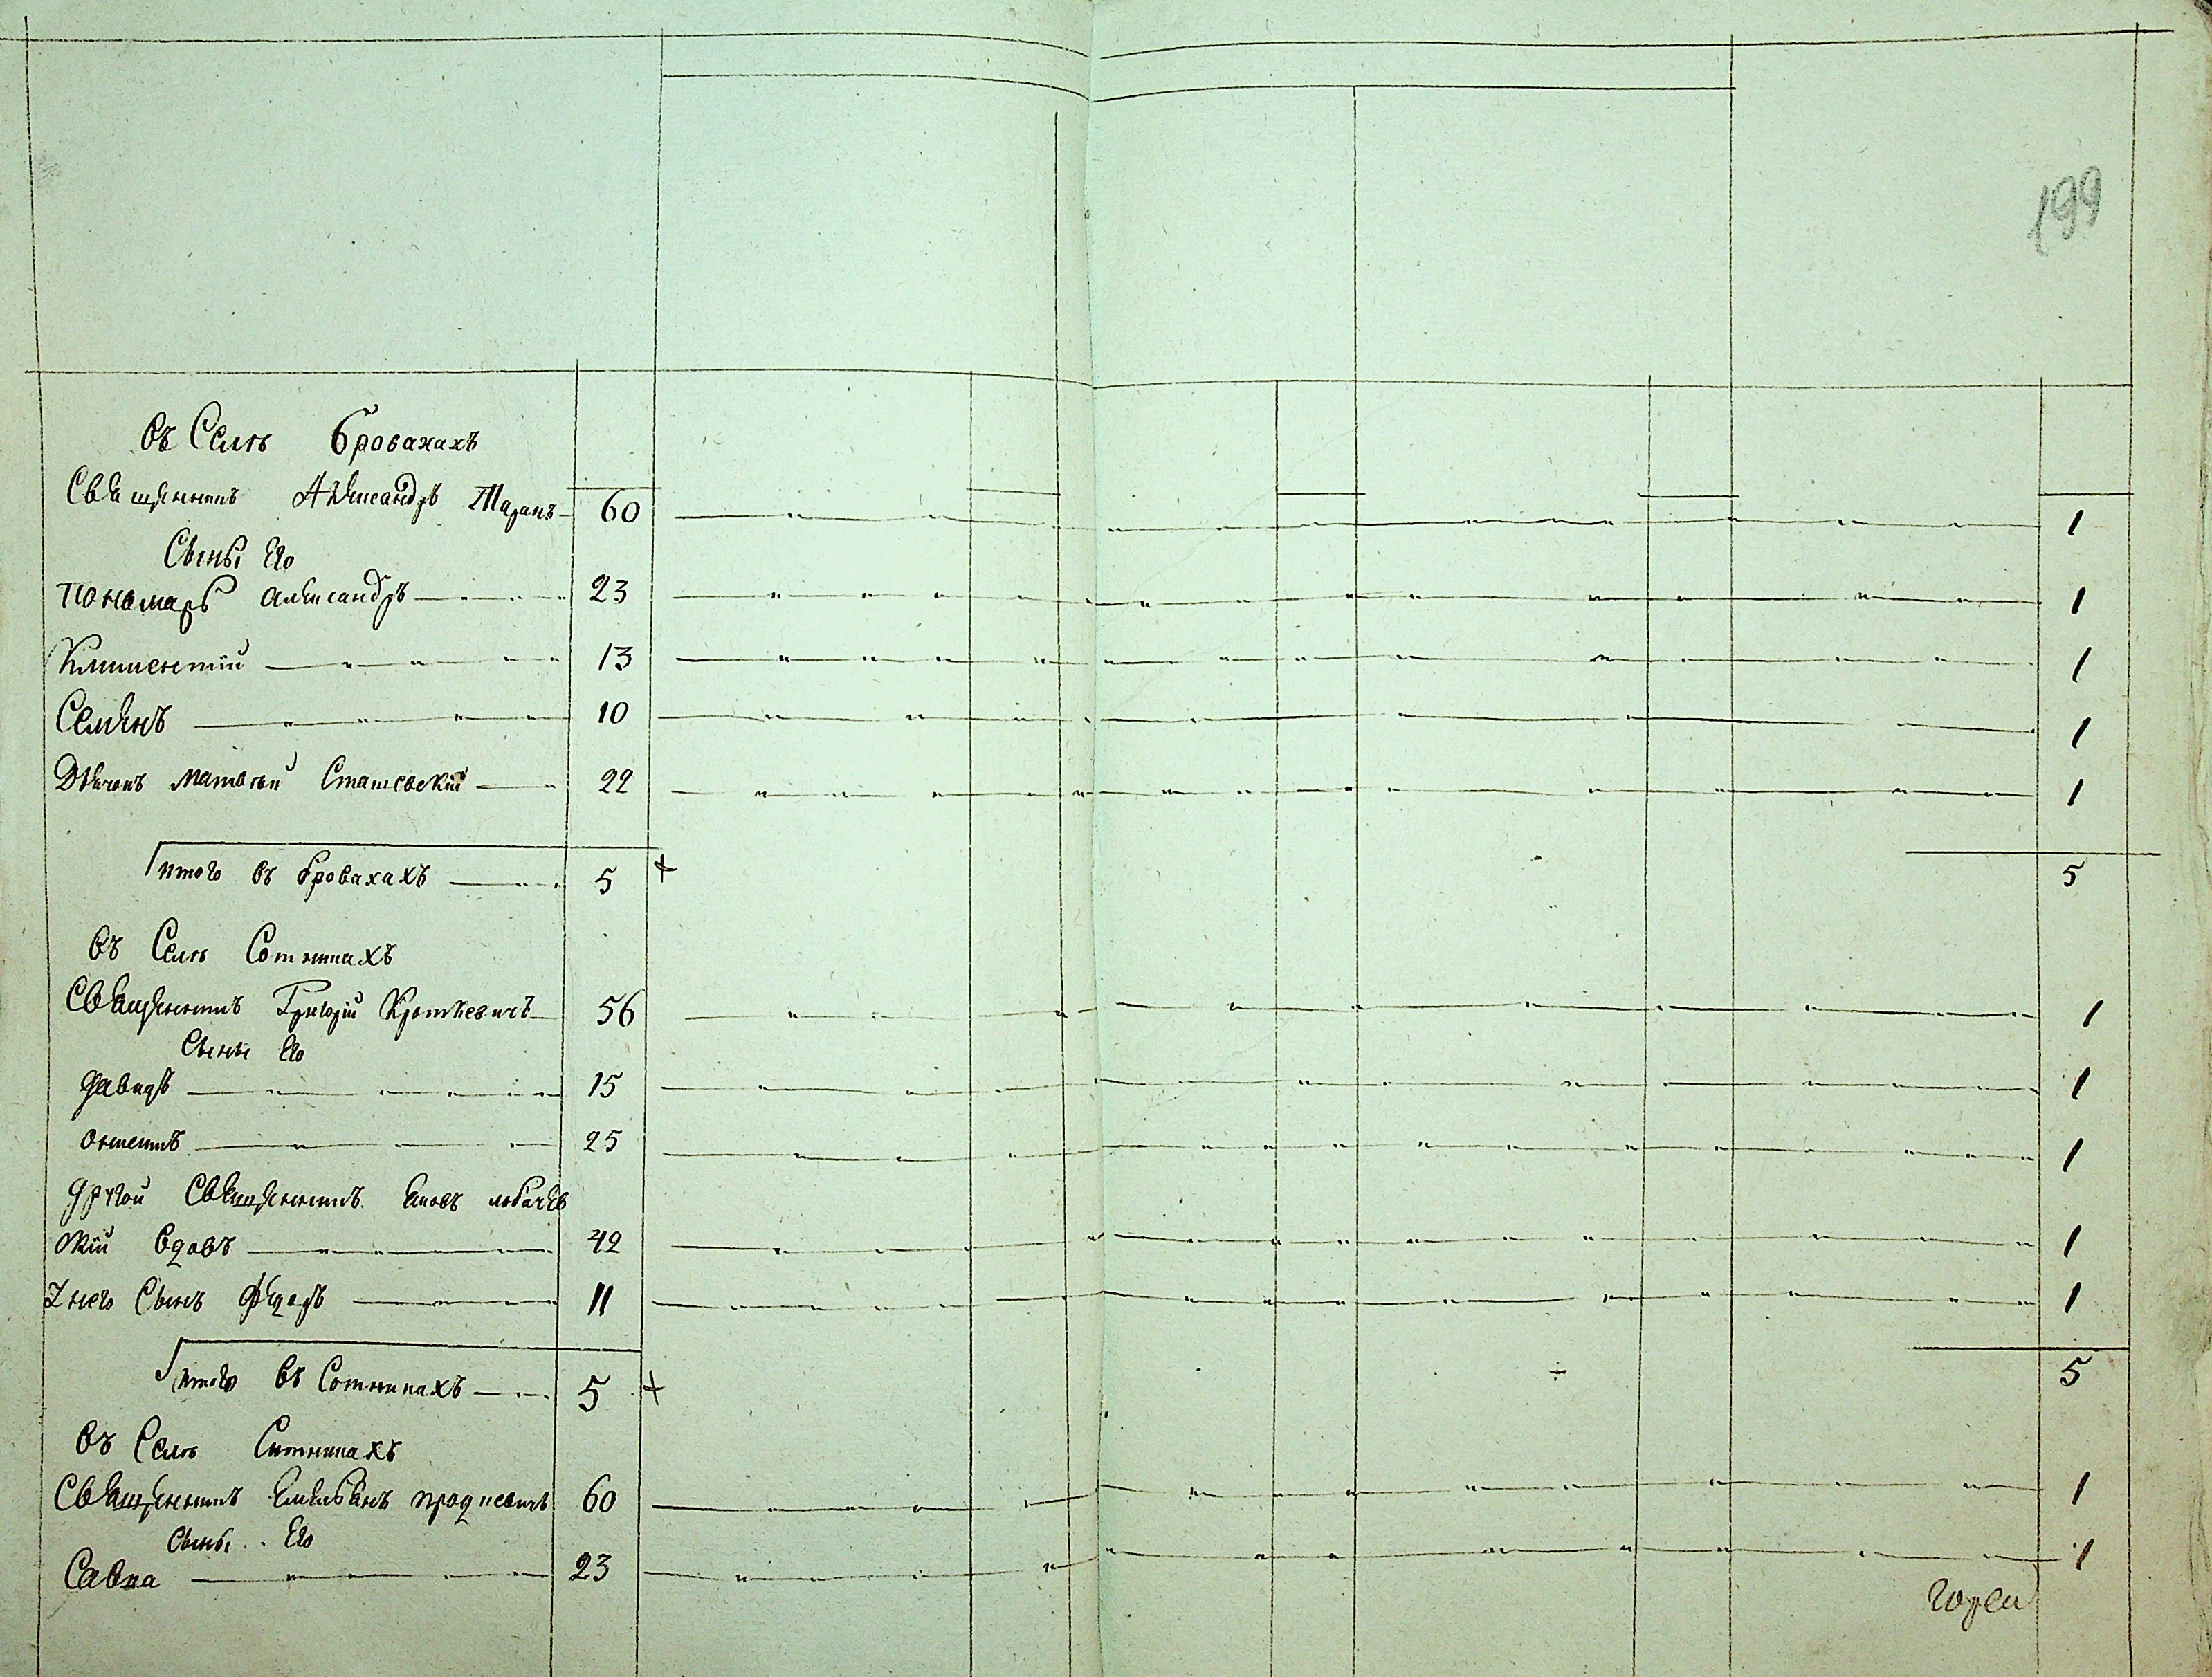 199
Въ Селѣ Бровахахъ
Священникъ Александръ Таранъ 60 1
Сыны Его
пономарь александръ 23 1
Климентий 13 1
Семенъ 10 1
Дьячокъ матвей Сташевский 22 1
итого въ бровахахъ 5 + 5
Въ Селѣ Сотникахъ
Священникъ Григорий 56 1
Сыны Его
давидъ 15 1
25 1
другой Священникъ Яковъ любачев
ский вдовъ 42 1
У него Сынъ федоръ 11 1
итого въ Сотникахъ 5 + 5
Въ Селѣ Ситникахъ
Священникъ Емельянъ 60 1
Сыны Его
Савка 23 1